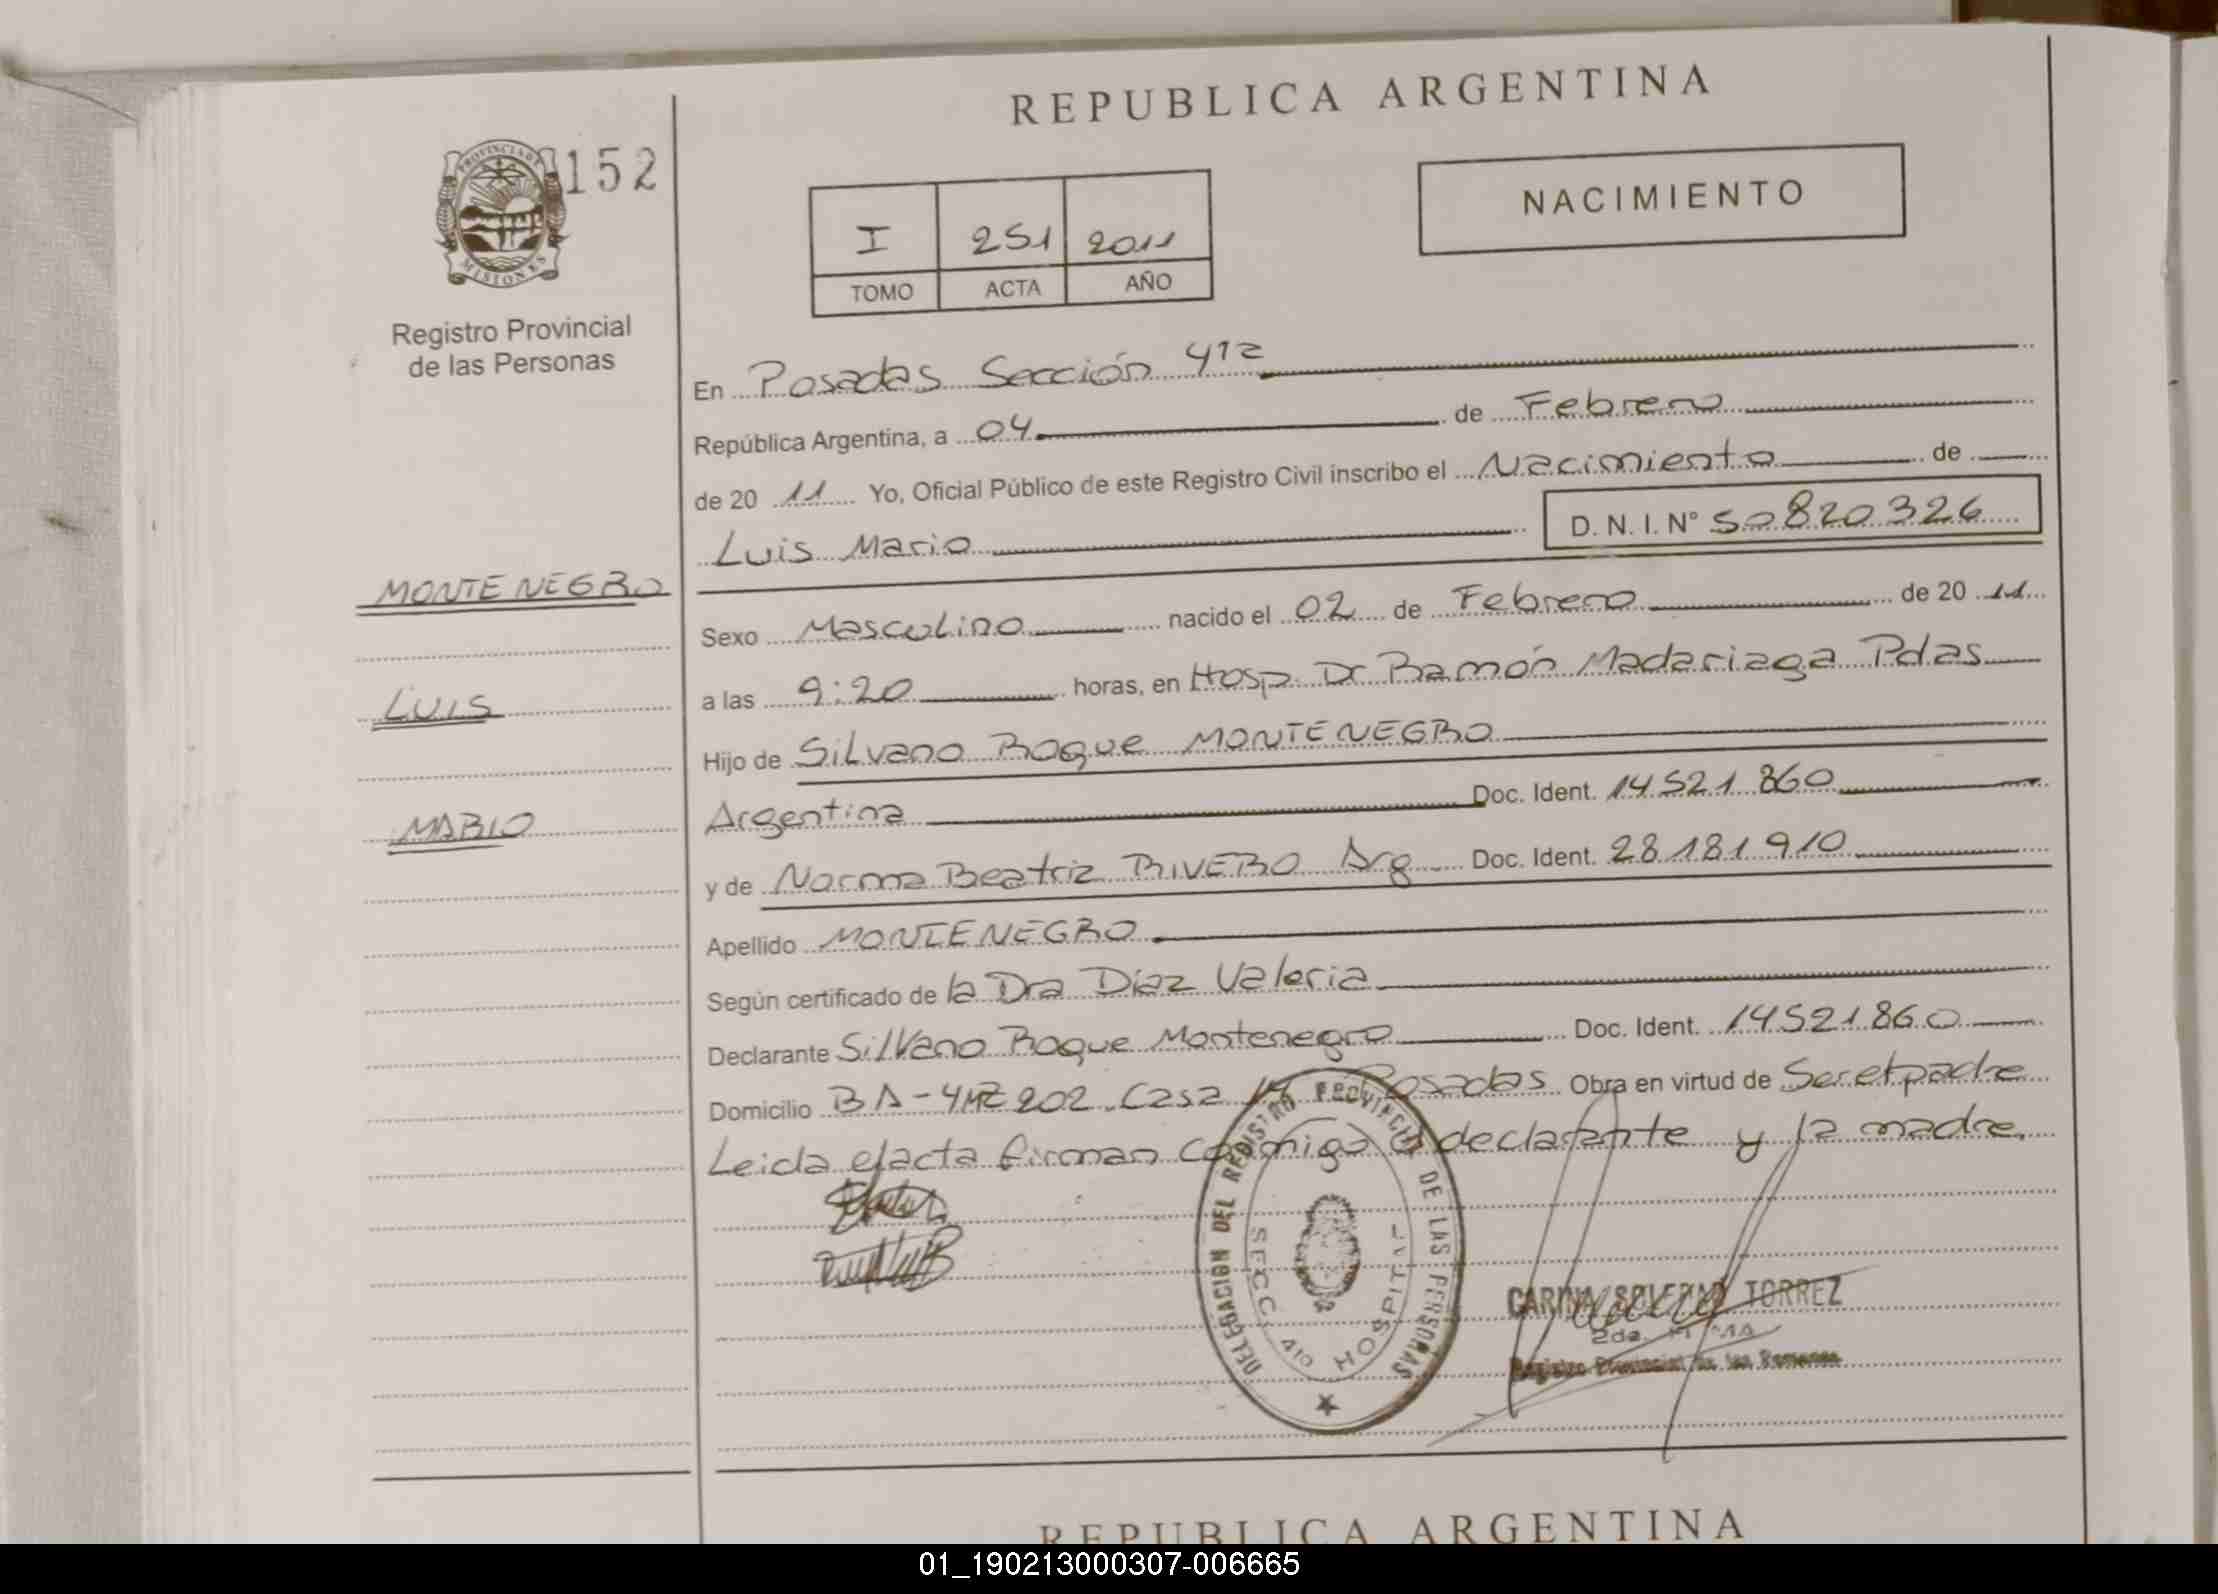 REPUBLICA ARGENTINA
PROVINCIA DE
MISIONES
152
Registro Provincial
de las Personas
I 251 2011
TOMO ACTA AÑO
NACIMIENTO
En Posadas Sección
República Argentina, a 04 de Febrero
de 20 11 Yo, Oficial Público de este Registro Civil inscribo el Nacimiento de
Luis Mario D.N.I. N° 50820326
MONTENEGRO
LUIS
MARIO
Sexo Masculino nacido el 02 de Febrero de 20 11
a las 9:20 horas, en Hosp. Dr Ramón Madariaga Pdas
Hijo de Silvano Roque MONTENEGRO
Argentina Doc. Ident. 14521860
y de Norma Beatriz RIVERO Arg Doc. Ident. 28181910
Apellido MONTENEGRO
Según certificado de la Dra Díaz Valeria
Declarante Silvano Roque Montenegro Doc. Ident. 14521860
Domicilio Casa Posadas Obra en virtud de Ser el padre
Leida el acta firman conmigo el declarante y la madre
DELEGACION DEL REGISTRO PROVINCIAL DE LAS PERSONAS
SECC. 410 HOSPITAL
CARINA SOLEDAD TORREZ
Registro Provincial de las Personas
REPUBLICA ARGENTINA
01_190213000307-006665